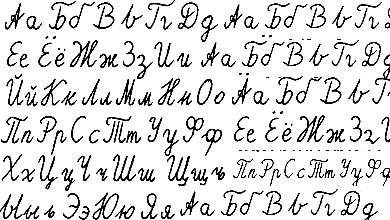 Аа Бб Вв Гг Дд Аа Бб Вв
Ее Ёё Жж Зз Ии Аа Бб Вв Гг Дд
Йй Кк Лл Мм Нн Оо Аа Бб Вв Г
Пп Рр Сс Тт Уу Фф Ее Ёё Жж Зз
Хх Цц Чч Шш Щщ Пп Рр Сс Тт Уу Ф
Ыы ь Ээ Юю Яя Аа Бб Вв Гг Дд